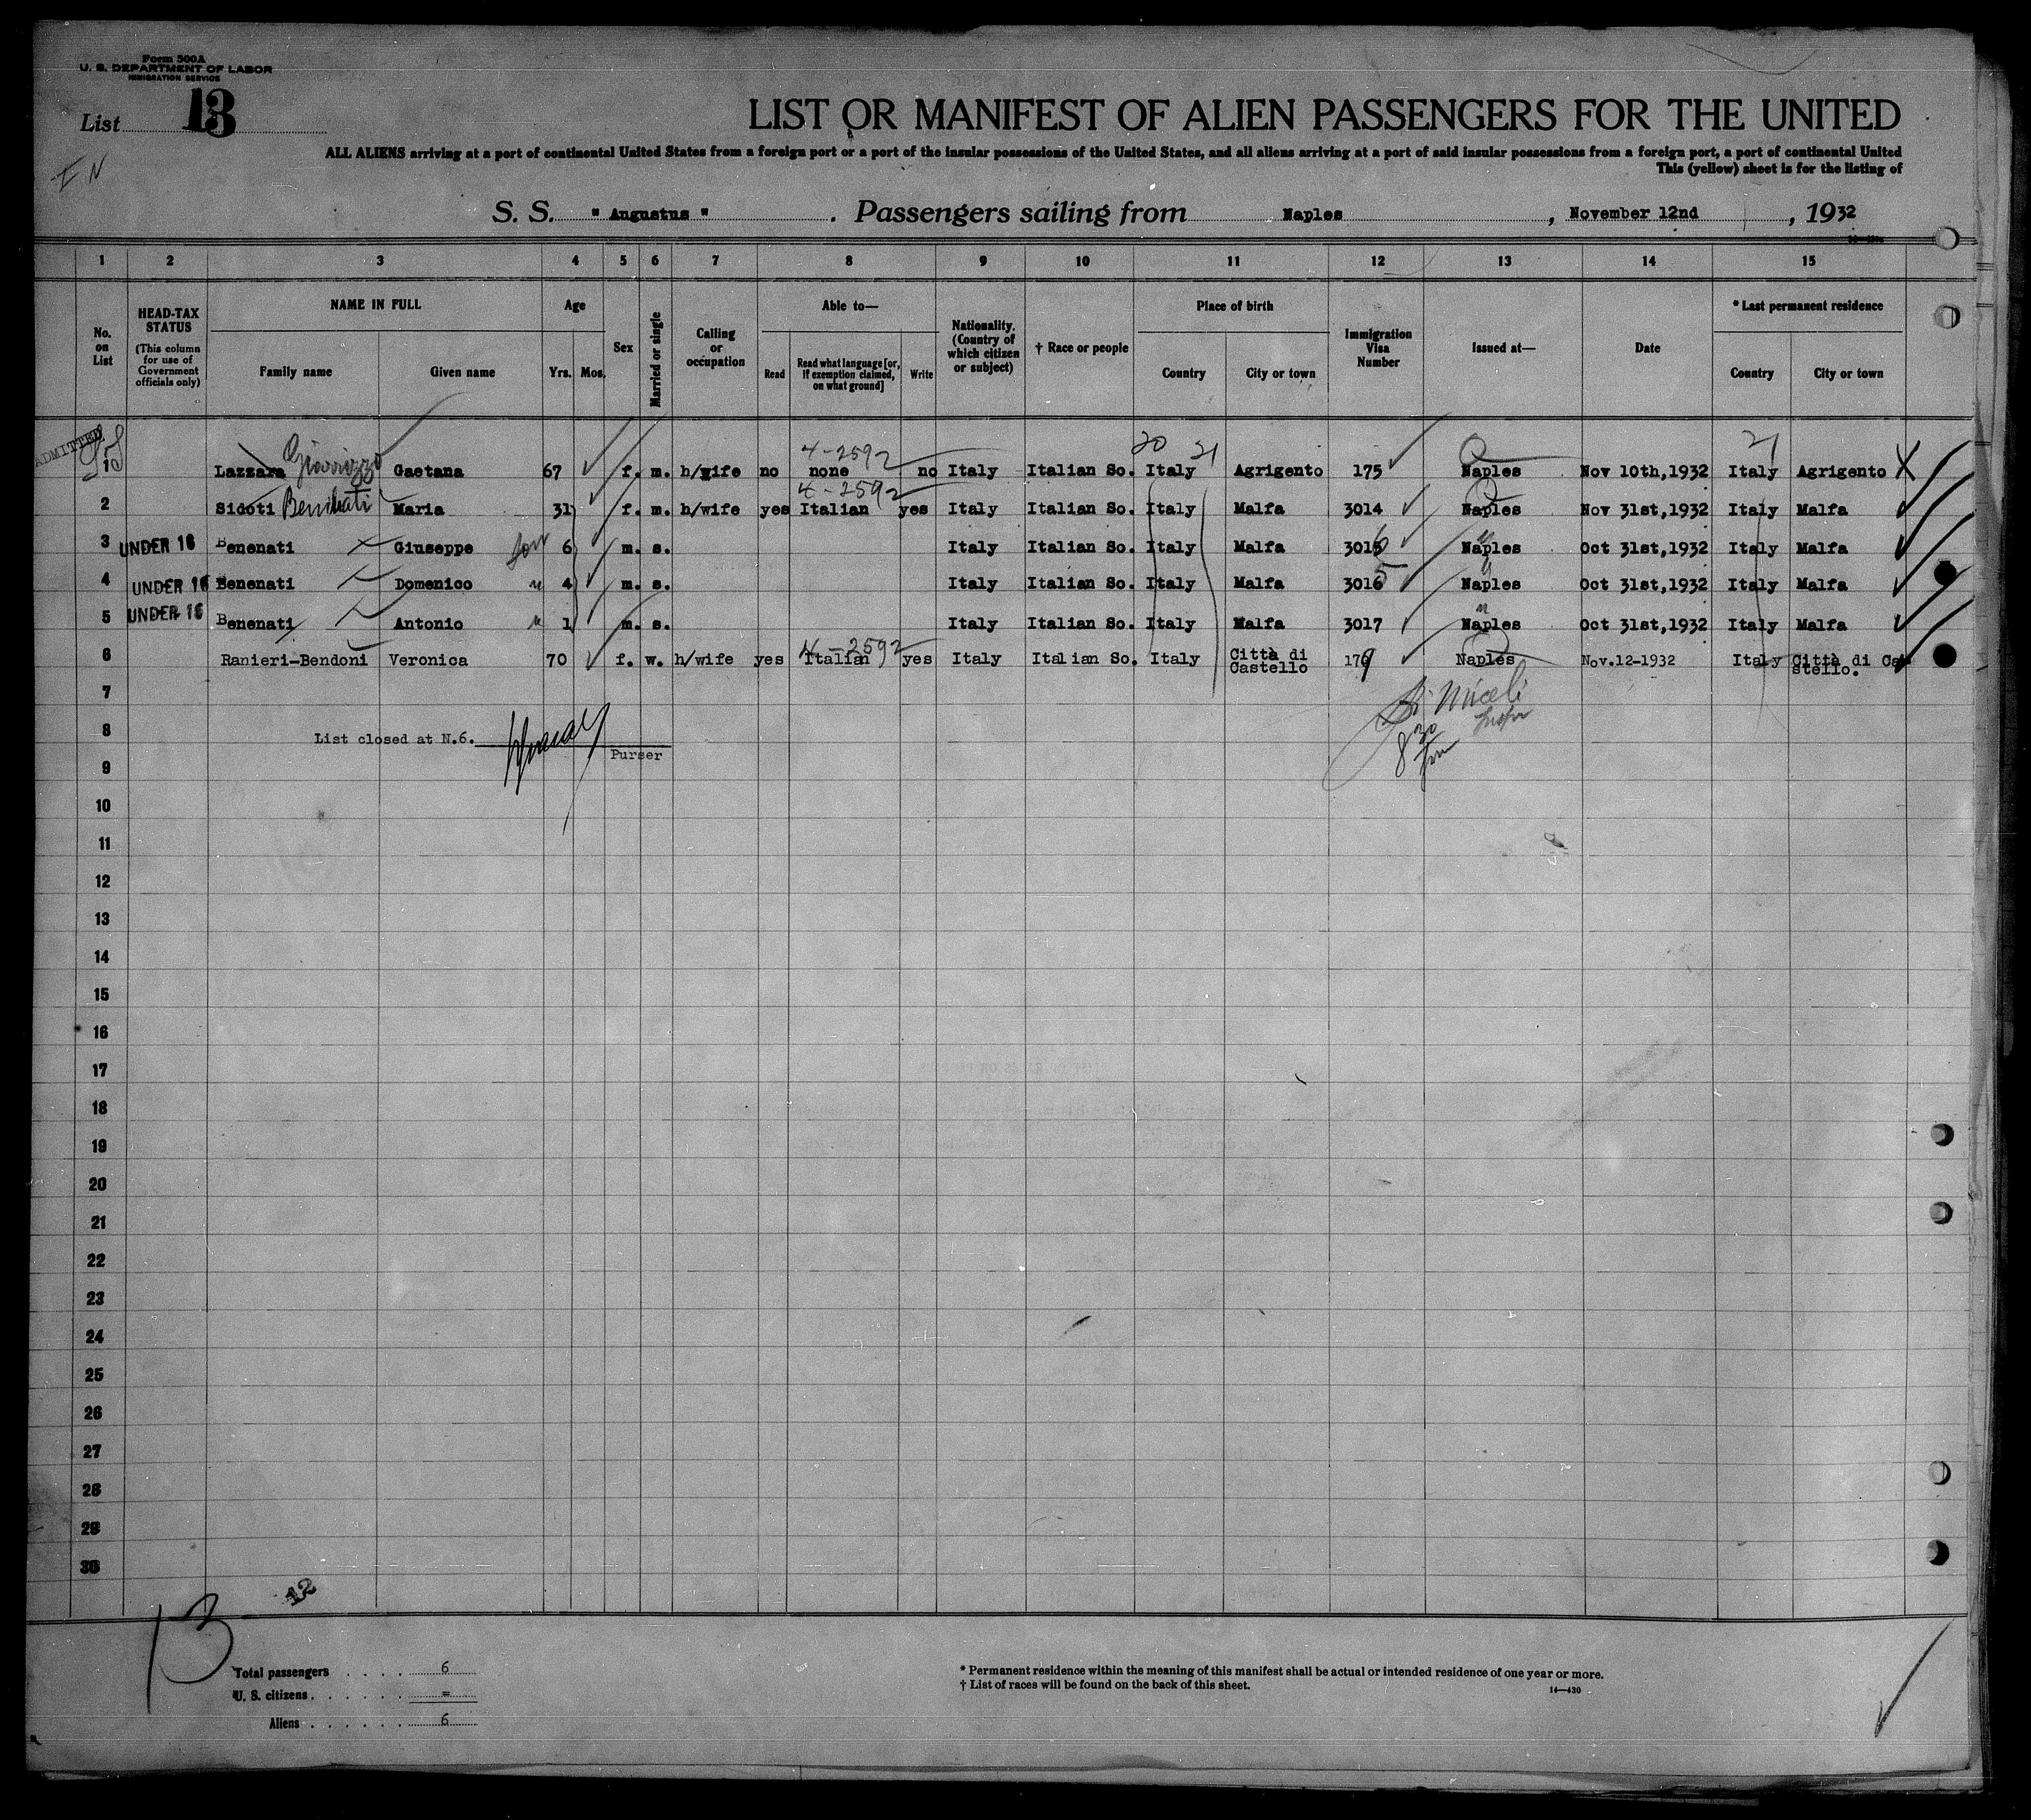 Form 500A
U. S. DEPARTMENT OF LABOR
IMMIGRATION SERVICE
List 13
LIST OR MANIFEST OF ALIEN PASSENGERS FOR THE UNITED
ALL ALIENS arriving at a port of continental United States from a foreign port or a port of the insular possessions of the United States, and all aliens arriving at a port of said insular possessions from a foreign port, a port of continental United
This (yellow) sheet is for the listing of
S. S. " Augustus " . Passengers sailing from Naples , November 12nd , 1932
1 2 3 4 5 6 7 8 9 10 11 12 13 14 15
No. on List
HEAD-TAX STATUS (This column for use of Government officials only)
NAME IN FULL
Family name Given name
Age
Yrs. Mos.
Sex
Married or single
Calling or occupation
Able to—
Read Read what language [or, if exemption claimed, on what ground] Write
Nationality. (Country of which citizen or subject)
† Race or people
Place of birth
Country City or town
Immigration Visa Number
Issued at—
Date
* Last permanent residence
Country City or town
ADMITTED
4-2592 20 21 21
1 Lazzara Giarrizzo Gaetana 67 f. m. h/wife no none no Italy Italian So. Italy Agrigento 175 Naples Nov 10th,1932 Italy Agrigento X
4-2592
2 Sidoti Benenati Maria 31 f. m. h/wife yes Italian yes Italy Italian So. Italy Malfa 3014 Naples Nov 31st,1932 Italy Malfa
3 UNDER 16 Benenati Giuseppe son 6 m. s. Italy Italian So. Italy Malfa 3016 Naples Oct 31st,1932 Italy Malfa
4 UNDER 16 Benenati Domenico " 4 m. s. Italy Italian So. Italy Malfa 3015 Naples Oct 31st,1932 Italy Malfa
5 UNDER 16 Benenati Antonio " 1 m. s. Italy Italian So. Italy Malfa 3017 Naples Oct 31st,1932 Italy Malfa
4-2592
6 Ranieri-Bendoni Veronica 70 f. w. h/wife yes Italian yes Italy Italian So. Italy Città di Castello 179 Naples Nov.12-1932 Italy Città di Castello.
7
8 List closed at N.6.
Purser
9
10
11
12
13
14
15
16
17
18
19
20
21
22
23
24
25
26
27
28
29
30
13 12
Total passengers . . . . 6
U. S. citizens . . . . . . =
Aliens . . . . . . 6
* Permanent residence within the meaning of this manifest shall be actual or intended residence of one year or more.
† List of races will be found on the back of this sheet.
14—430